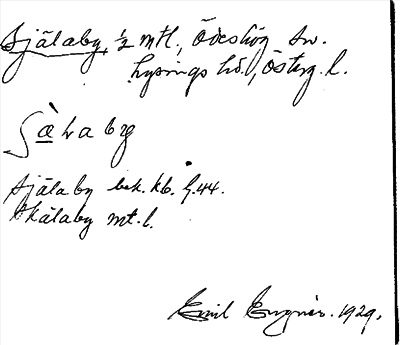 Själaby, 1/2 mtl., Ödeshög sn.
Lysings hd., Österg. l.
Själaby bek. kb. f. 44.
Skälaby mt. l.
Emil 1929.